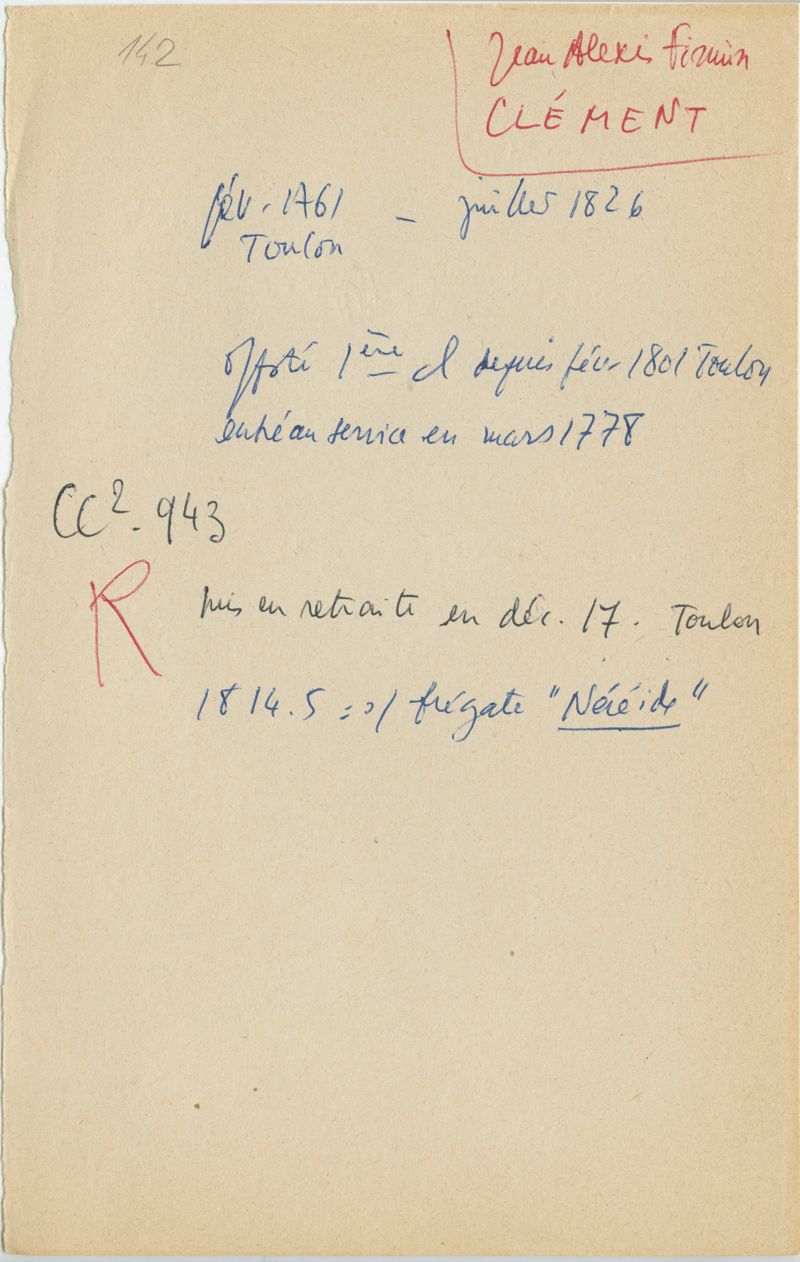 142
Jean Alexis Firmin
CLÉMENT
fév. 1761 – juillet 1826
Toulon
off sté 1ère cl depuis févr 1801 Toulon
entré au service en mars 1778
CC2. 943
R mis en retraite en déc. 17. Toulon
1814.5 = s/ frégate "Néréide"